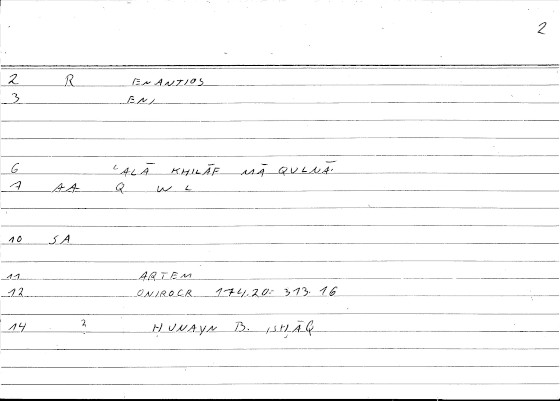 2
2 R ENANTIOS
3 EN,
6 ʿALĀ KHILĀF MĀ QULNĀ.
7 AA Q W L
10 SA
11 ARTEM
12 ONIROCR 174.20 = 313.16
14 2 ḤUNAYN B. ISḤĀQ